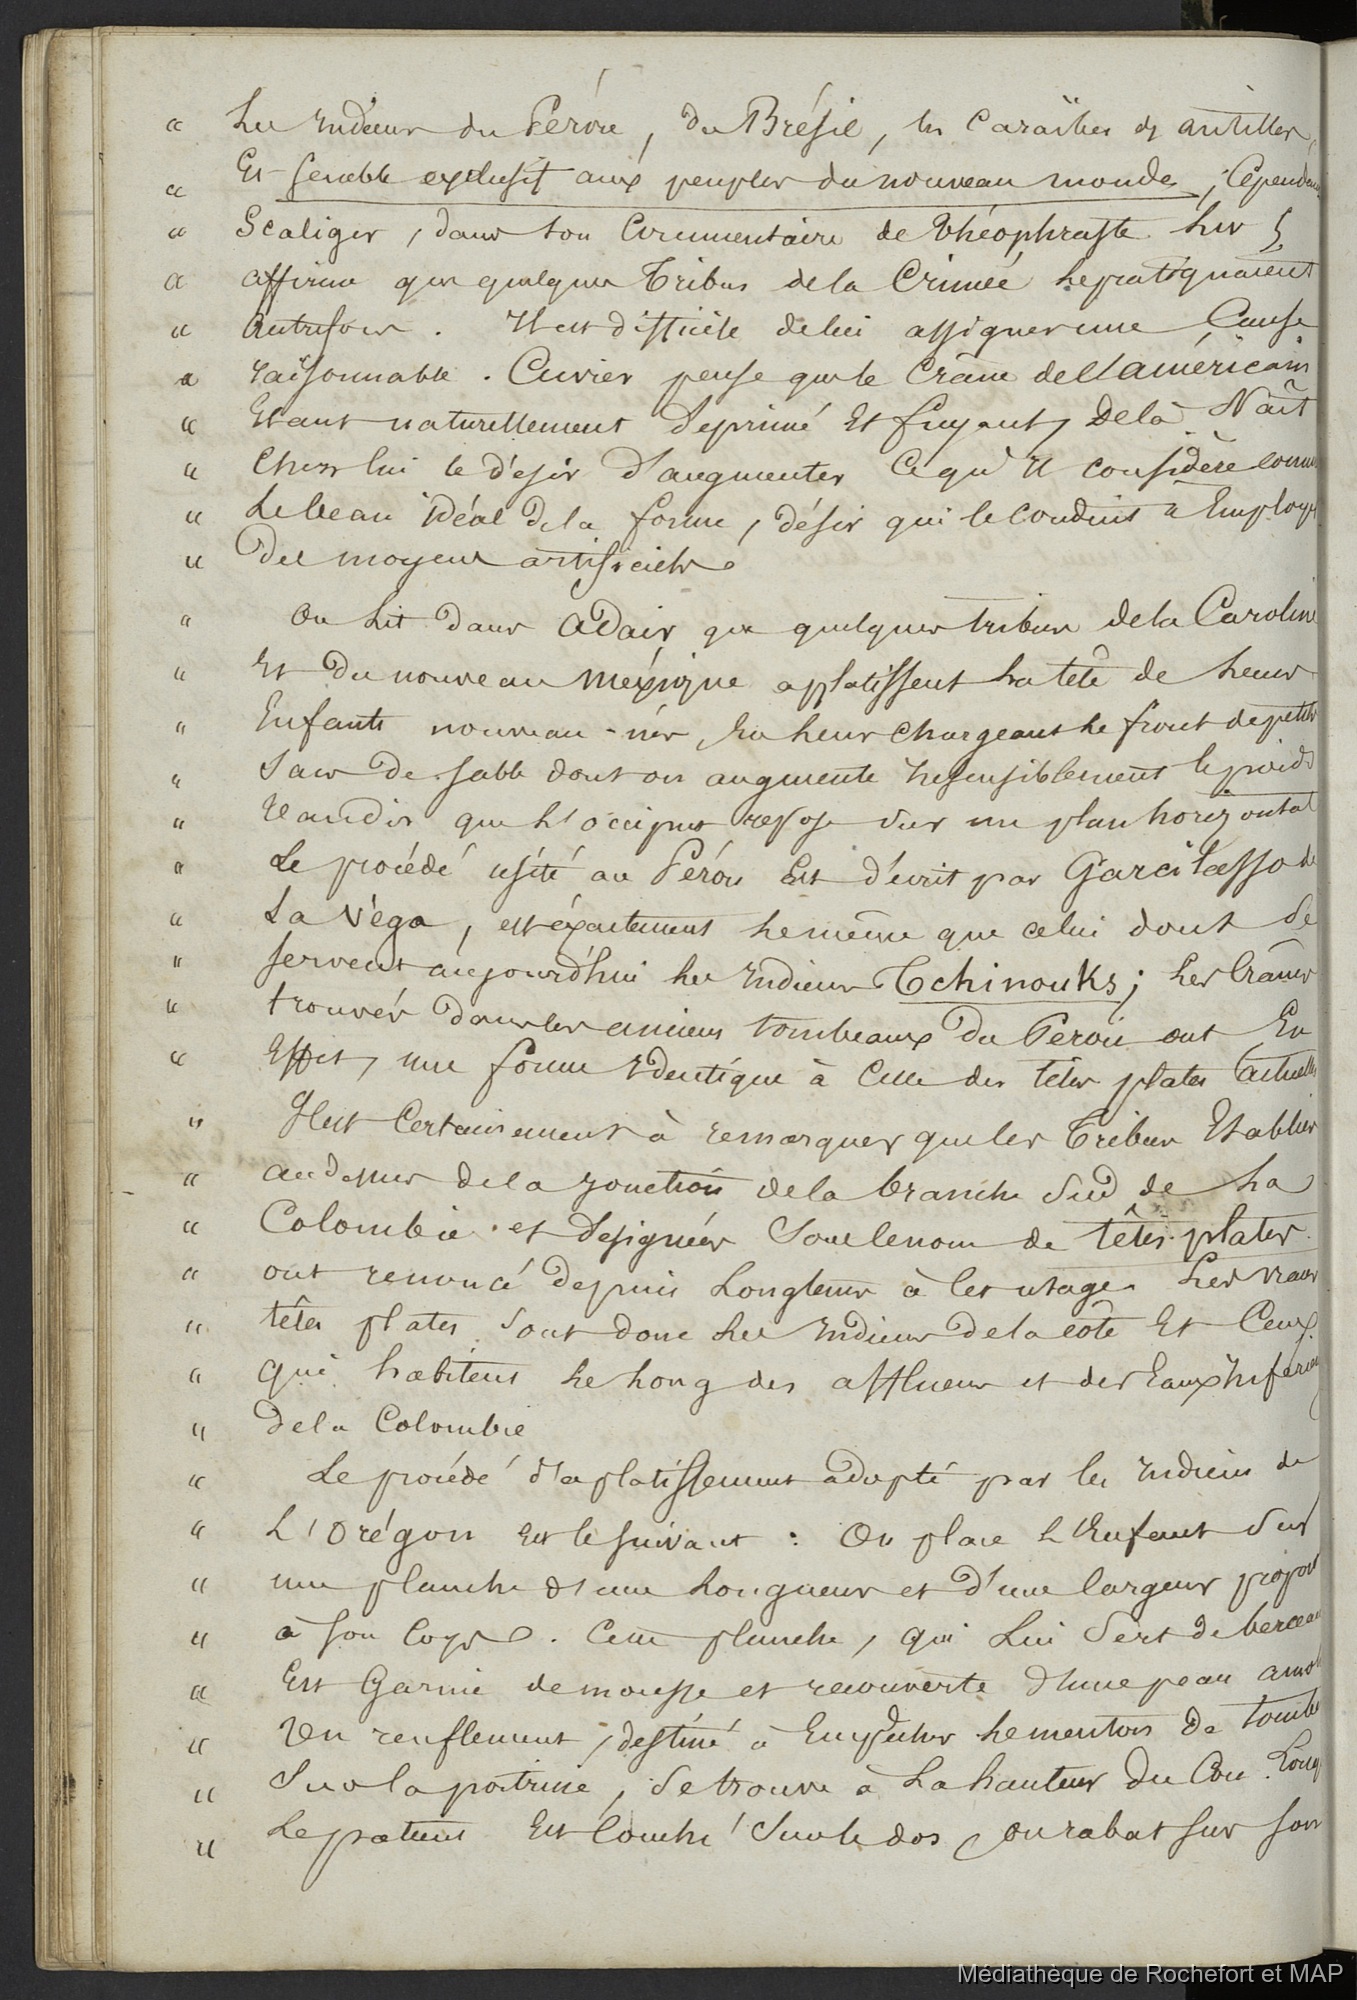 " Les Indiens du Pérou, du Brésil, les Caraïbes des Antilles,
" Et semble exclusif aux peuples du nouveau monde, ; Cépendant
" Scaliger, dans son Commentaire de Théophraste
" affirme que quelques Tribus de la Crimée le pratiquaient
" Autrefois. Il est difficile de lui assigner une Cause
" raisonnable. Cuvier pense que le Crâne de l'américain
" Etant naturellement déprimé Et fuyant, De là Naît
" Chez lui le désir d'augmenter Ce qu'Il considère comme
" Le beau idéal de la forme, désir qui le conduit à Employer
" Des moyens artificiels.
" On Lit dans Adair que quelques tribus de la Caroline
" Et du nouveau méxique applatissent la tête de Leurs
" Enfants nouveau-nés, En leur Chargeant le front de petits
" Sacs de sable dont on augmente Insensiblement le poids
" Tandis que L'occiput repose sur un plan horizontal
" Le procédé usité au Pérou Et décrit par Garcilasso de
" La Véga, est éxactement le même que celui dont se
" servent aujourd'hui les Indiens Tchinouks; Les Crânes
" trouvés dans les anciens tombeaux du Pérou ont En
" Effet, une forme Identique à Celle des têtes plates actuelles
" Il est Certainement à remarquer que les Tribus Etablies
" au dessus de la Jonction de la branche Sud de La
" Colombie et désignées Sous le nom de têtes plates.
" ont renoncé depuis Longtems à cet usage. Les vraies
" têtes plates sont donc les Indiens de la côte Et Ceux
" qui habitent le Long des affluens et des Eaux Inférieures
" de la Colombie
" Le procédé d'aplatissement adopté par les Indiens de
" L'Orégon Est le suivant : On place L'Enfant sur
" une planche d'une Longueur et d'une largeur propor
" à son Corps. Cette planche, qui Lui sert de berceau
" Est Garnie de mousse et recouverte d'une peau amol
" Un renflement, destiné à Empêcher le menton de tomber
" Sur la poitrine, se trouve à La hauteur du Cou.
" Le patient Est Couché Sur le dos, on rabat sur son
Médiathèque de Rochefort et MAP